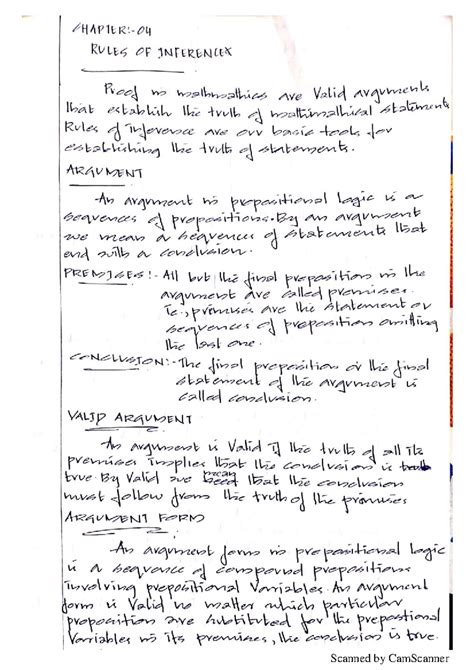 CHAPTER:-04
RULES OF INFERENCE
Proof in mathmathics are Valid arguments
that establish the truth of mathimathical statements
Rules of inference are our basic tools for
establishing the truth of statements.
ARGUMENT
An argument in prepositional logic is a
sequences of propositions. By an argument
we mean a sequences of statements that
end with a conclusion.
PREMISES:- All but the final preposition in the
argument are called premises.
ie., premises are the statement or
sequences of preposition omitting
the last one.
CONCLUSION:- The final preposition or the final
statement of the argument is
called conclusion.
VALID ARGUMENT
An argument is Valid if the truth of all its
premises implies that the conclusion is
true. By Valid we mean that the conclusion
must follow from the truth of the premises
ARGUMENT FORM
An argument form in prepositional logic
is a sequence of compound prepositions
involving prepositional Variables. An argument
form is Valid no matter which particular
preposition are substituted for the prepostional
Variables in its premises, the conclusion is true.
Scanned by CamScanner